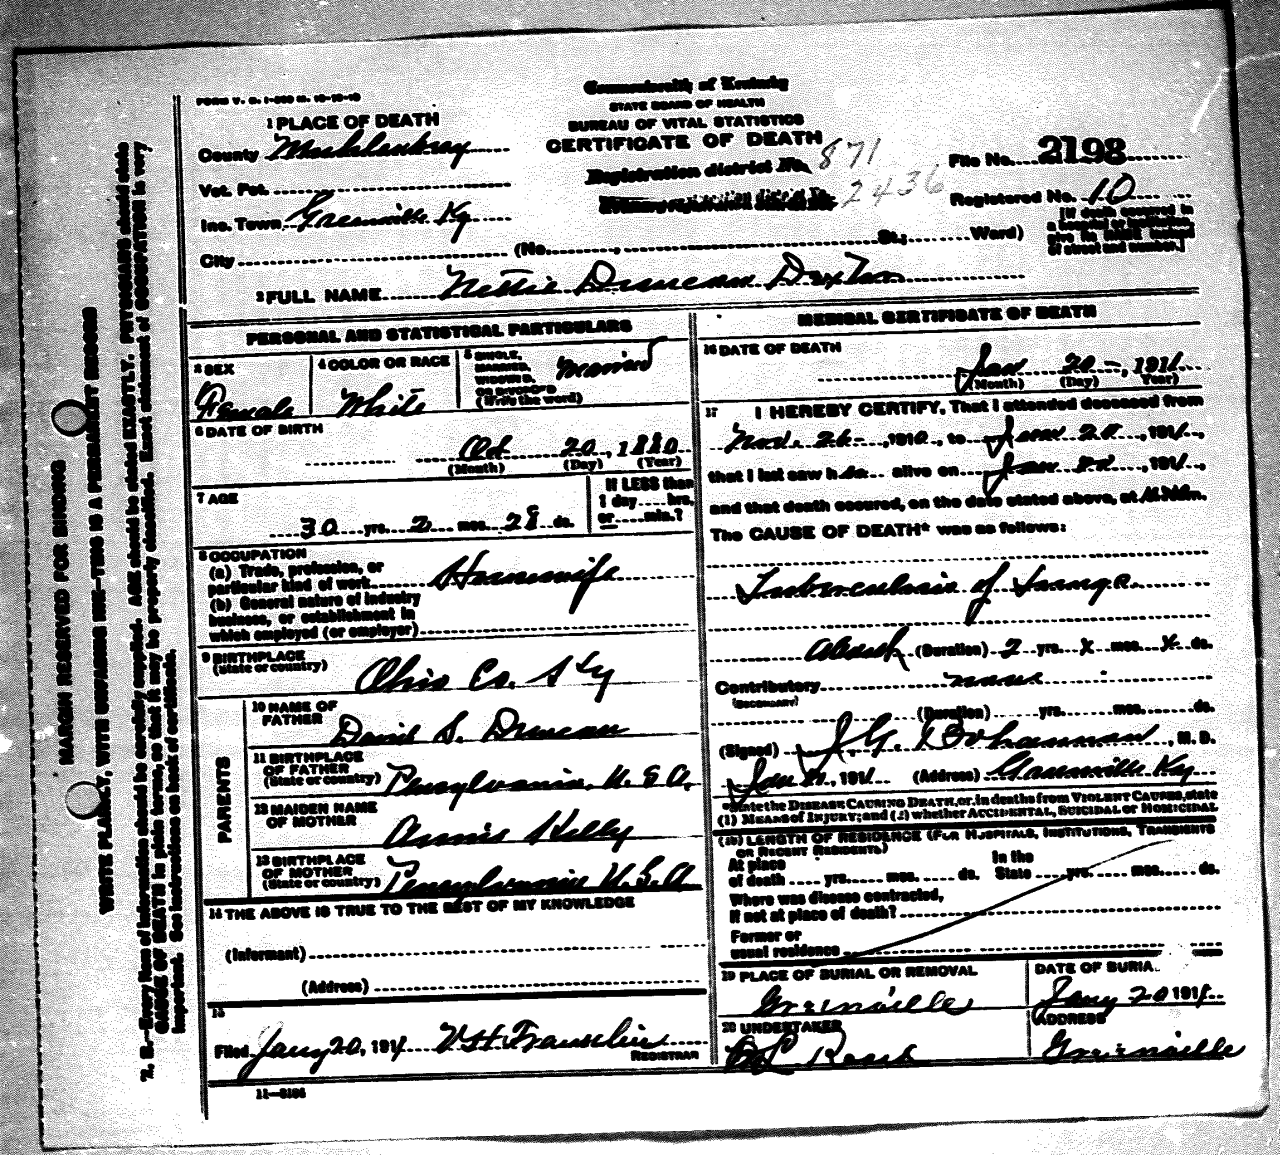 FORM V. S. 1-
Commonwealth of Kentucky
STATE BOARD OF HEALTH
BUREAU OF VITAL STATISTICS
CERTIFICATE OF DEATH
1 PLACE OF DEATH
County Muhlenburg
Vot. Pct.
Inc. Town Greenville Ky
City
Registration district No. 871
2436
File No. 2198
Registered No. 10
[If death occurred in
a hospital or institution,
give its NAME instead
of street and number.]
(No. , St.; Ward)
2 FULL NAME Nettie Duncan Dexter
PERSONAL AND STATISTICAL PARTICULARS
3 SEX
Female
4 COLOR OR RACE
White
5 SINGLE,
MARRIED,
WIDOWED,
OR DIVORCED
(Write the word)
Married
6 DATE OF BIRTH
Oct 20, 1880
(Month) (Day) (Year)
7 AGE
30 yrs. 2 mos. 28 ds.
If LESS than
1 day hrs.
or min.?
8 OCCUPATION
(a) Trade, profession, or
particular kind of work Housewife
(b) General nature of industry
business, or establishment in
which employed (or employer)
9 BIRTHPLACE
(State or country)
Ohio Co. Ky
PARENTS
10 NAME OF
FATHER
David S. Duncan
11 BIRTHPLACE
OF FATHER
(State or country)
Pensylvania, U.S.A.
12 MAIDEN NAME
OF MOTHER
Annie Kelly
13 BIRTHPLACE
OF MOTHER
(State or country)
Pensylvania U.S.A
14 THE ABOVE IS TRUE TO THE BEST OF MY KNOWLEDGE
(Informant)
(Address)
15
Filed Jany 20, 1911
REGISTRAR
11-3184
MEDICAL CERTIFICATE OF DEATH
16 DATE OF DEATH
Jan 20, 1911
(Month) (Day) (Year)
17 I HEREBY CERTIFY, That I attended deceased from
Nov. 26, 1910, to Jan 20, 1911,
that I last saw her alive on Jan 20, 1911,
and that death occured, on the date stated above, at m.
The CAUSE OF DEATH* was as follows:
Tuberculosis of Lungs.
About (Duration) 2 yrs. x mos. x ds.
Contributory none
(SECONDARY)
(Duration) yrs. mos. ds.
(Signed) J. G. Bohannan, M. D.
Jan 20, 1911 (Address) Greenville Ky
*State the DISEASE CAUSING DEATH, or, in deaths from VIOLENT CAUSES, state
(1) MEANS OF INJURY; and (2) whether ACCIDENTAL, SUICIDAL or HOMICIDAL
(18) LENGTH OF RESIDENCE (FOR HOSPITALS, INSTITUTIONS, TRANSIENTS
OR RECENT RESIDENTS)
At place
of death yrs. mos. ds.
In the
State yrs. mos. ds.
Where was disease contracted,
If not at place of death?
Former or
usual residence
19 PLACE OF BURIAL OR REMOVAL
Greenville
DATE OF BURIA
Jany 20 1911
20 UNDERTAKER
Roark
ADDRESS
Greenville
MARGIN RESERVED FOR BINDING
WRITE PLAINLY, WITH UNFADING INK—THIS IS A PERMANENT RECORD
N. B.—Every item of information should be carefully supplied. AGE should be stated EXACTLY. PHYSICIANS should state
CAUSE OF DEATH in plain terms, so that it may be properly classified. Exact statement of OCCUPATION is very
important. See instructions on back of certificate.